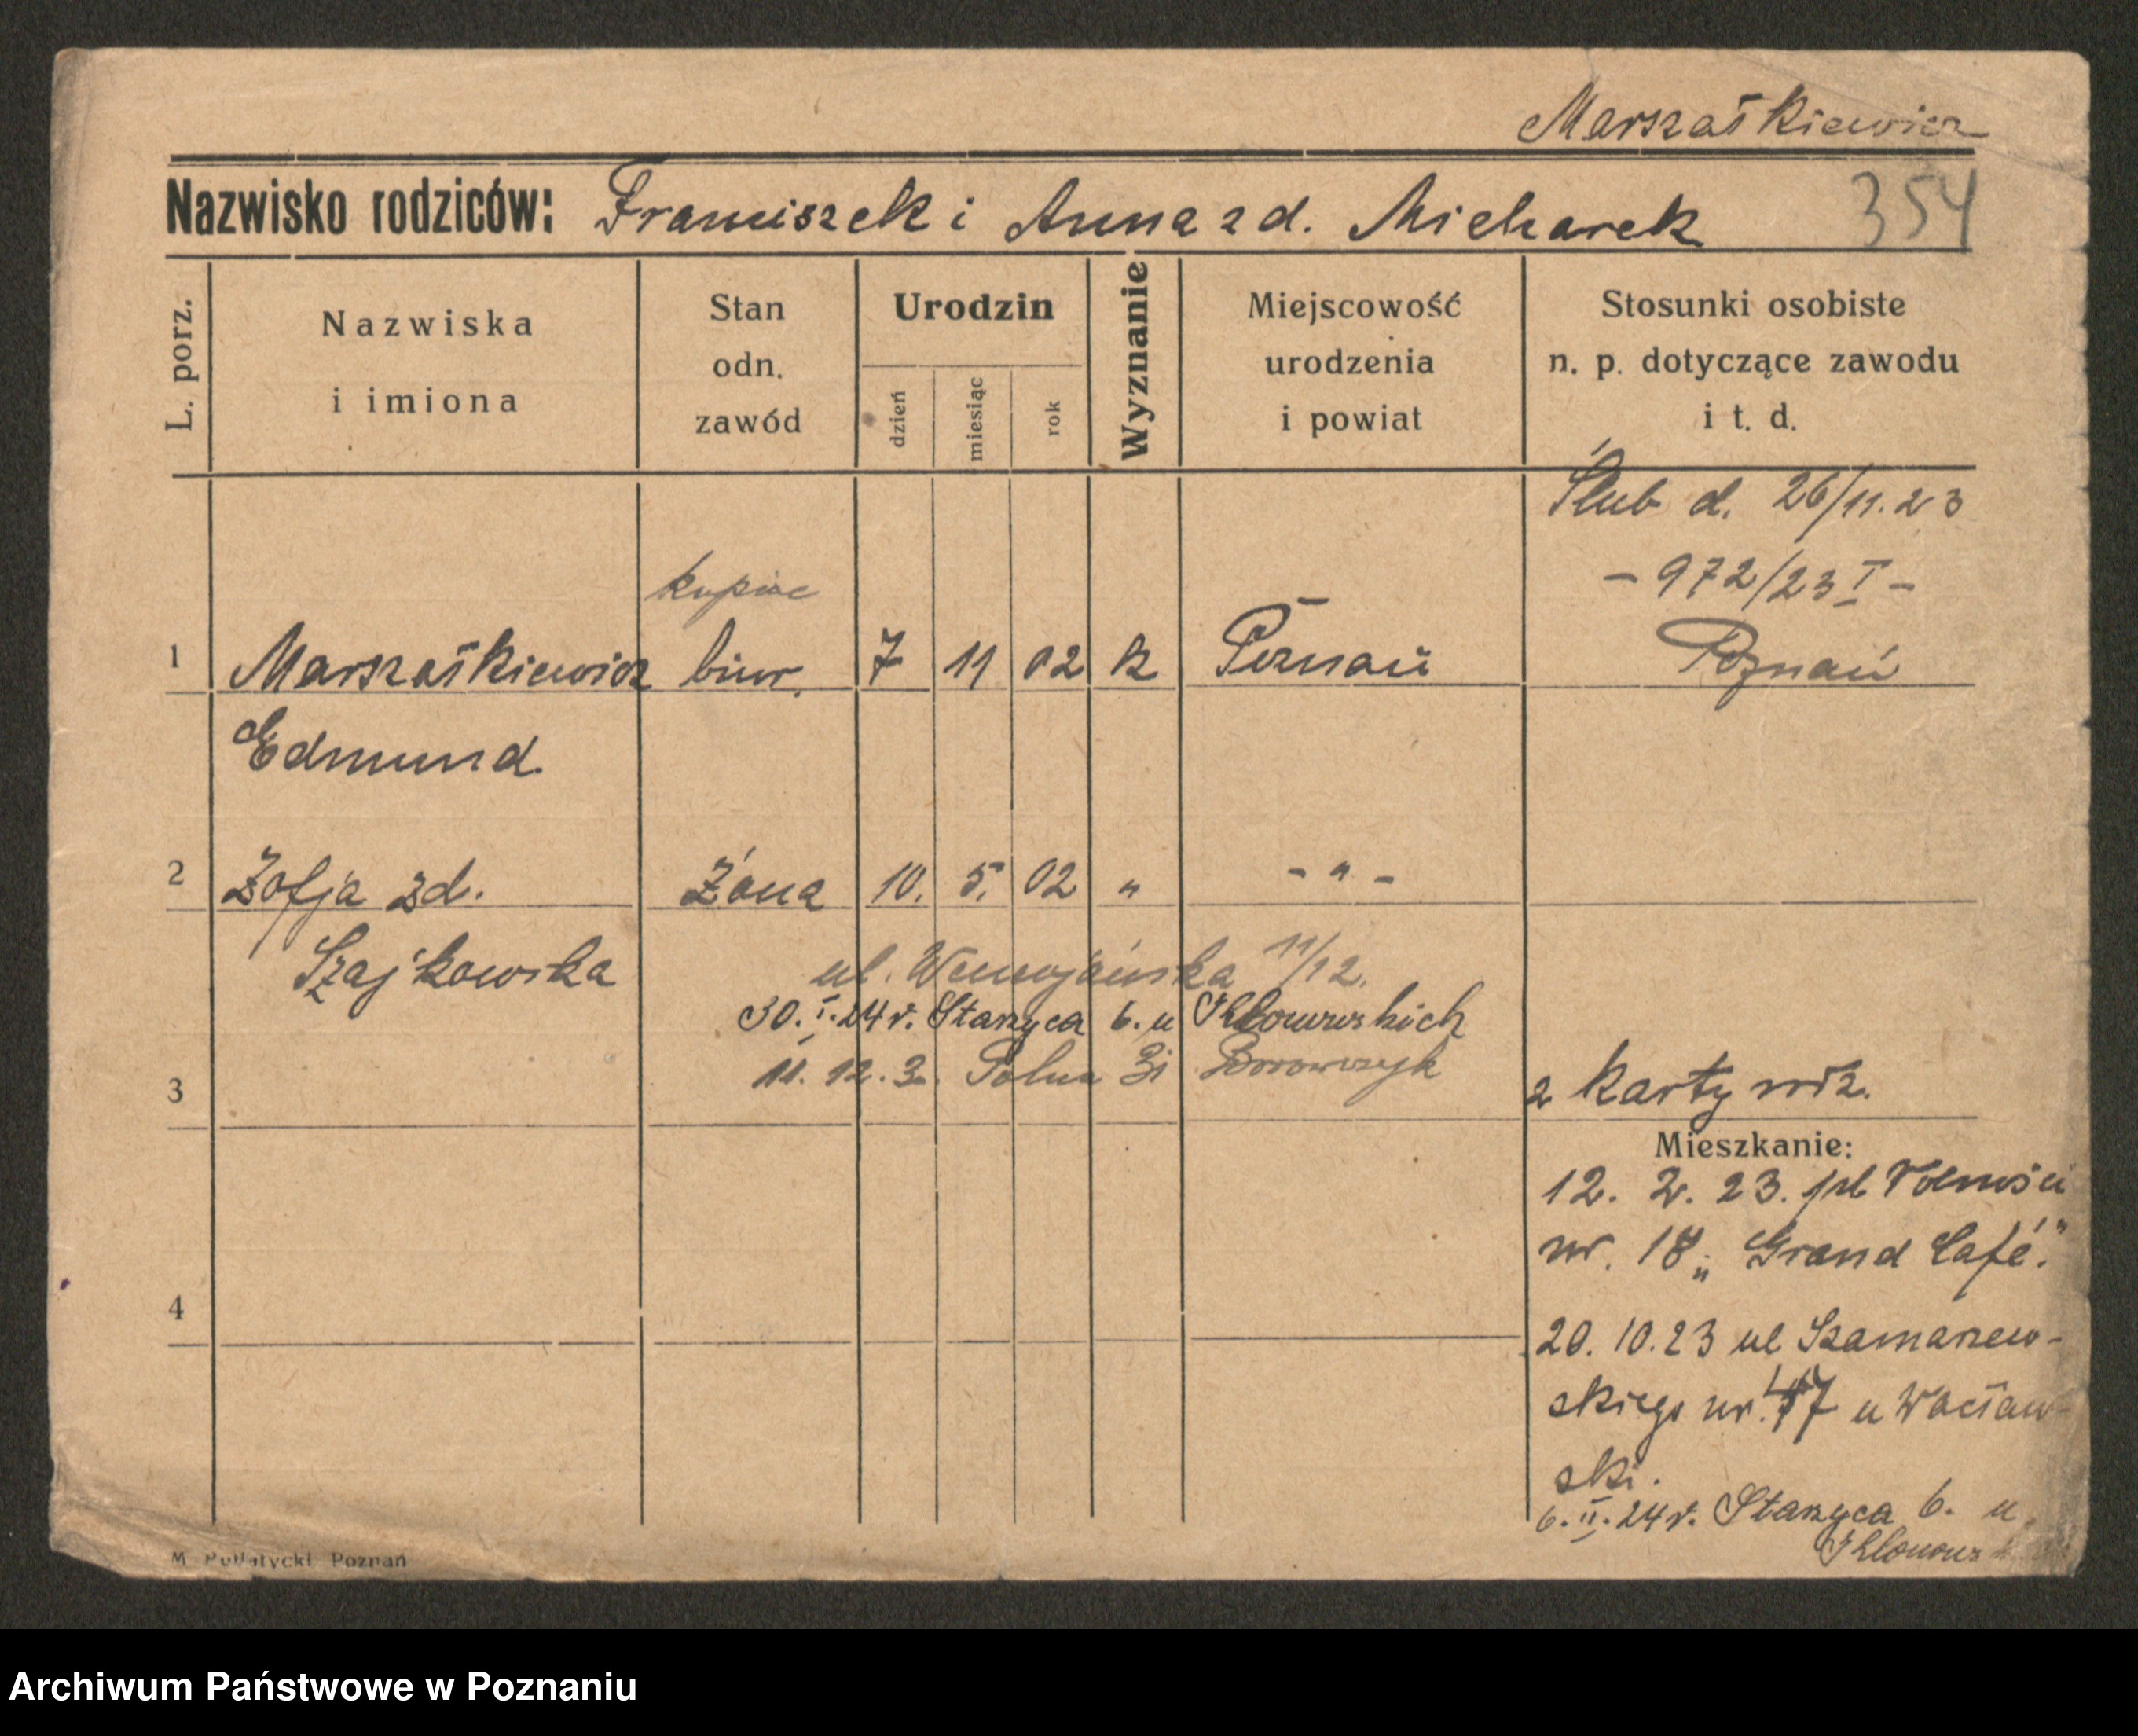 Marszałkiewicz
Nazwisko rodziców: Franciszek i Anna zd. Micharek
354
L. porz.
Nazwiska
i imiona
Stan
odn.
zawód
Urodzin
dzień
miesiąc
rok
Wyznanie
Miejscowość
urodzenia
i powiat
Stosunki osobiste
n. p. dotyczące zawodu
i t. d.
Ślub d. 26/11.23
- 972/23 I -
Poznań
kupiec
1 Marszałkiewicz biur. 7 11 02 k Poznań
Edmund.
2 Zofja zd. Żona 10. 5. 02 " - " -
Szajkowska
ul. 11/12.
30.I.24r. Starzyca 6. u
11. 12. 3. Polna Borowczyk
3
2 karty rodz.
Mieszkanie:
12. 2. 23. pl Wolności
nr. 18 „Grand Café."
20. 10. 23 ul Szamarzew-
skiego nr. 47 u Wacław-
ski.
4
6.II.24r. Starzyca 6. u
M Putiatycki Poznań
Archiwum Państwowe w Poznaniu